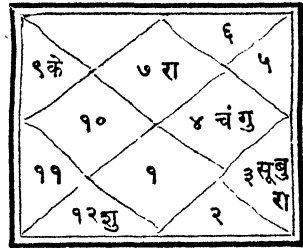 ६
९ के
७ रा
५
१०
४ चं गु
११
१
३ सू बु
रा
१२ शु
२